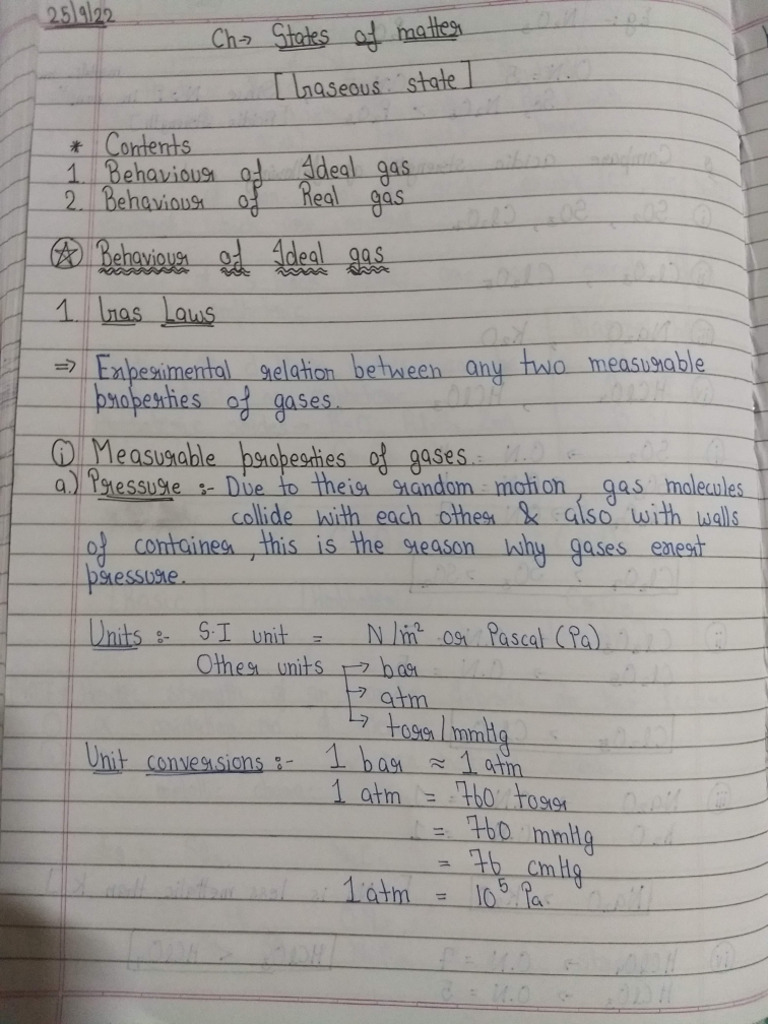 25/9/22
Ch→ States of matter
[Gaseous state]
* Contents
1. Behaviour of Ideal gas
2. Behaviour of Real gas
☆ Behaviour of Ideal gas
1. Gas Laws
⇒ Experimental relation between any two measurable
properties of gases.
(i) Measurable properties of gases
a.) Pressure :- Due to their random motion, gas molecules
collide with each other & also with walls
of container, this is the reason why gases exert
pressure.
Units :- S.I unit = N/m² or Pascal (Pa)
Other units → bar
→ atm
→ torr/mmHg
Unit conversions :- 1 bar ≈ 1 atm
1 atm = 760 torr
= 760 mmHg
= 76 cmHg
1 atm = 10⁵ Pa